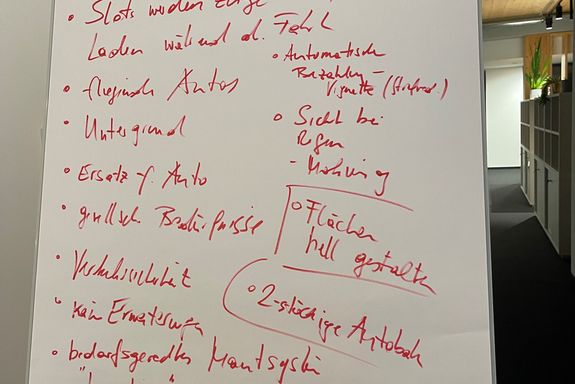 • Slots werden
Laden während d. Fahrt
• fliegende Autos
• Untergrund
• Ersatz f. Auto
• gesellsch. Bedürfnisse
• Verkehrssicherheit
• kein Erweiterungen
• bedarfsgerechtes
• Automatische
Bezahlung –
Vignette
○ Sicht bei
Regen
- Markierung
○ Flächen
hell gestalten
○ 2-stöckige Autobah